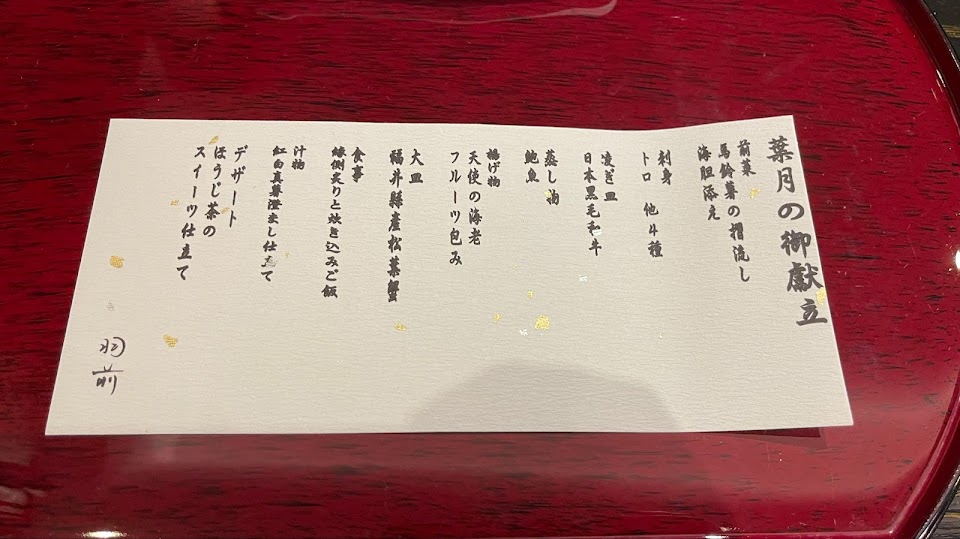 葉月の御献立
前菜
馬鈴薯の摺流し
海胆添え
刺身
トロ 他4種
凌ぎ皿
日本黒毛和牛
蒸し物
鮑魚
揚げ物
天使の海老
フルーツ包み
大皿
福井縣産松葉蟹
食事
縁側炙りと炊き込みご飯
汁物
紅白真薯澄まし仕立て
デザート
ほうじ茶の
スイーツ仕立て
羽前